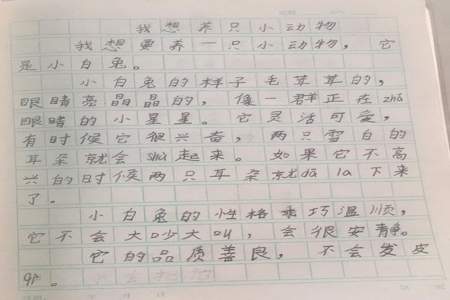 我想养只小动物
我想要养一只小动物，它
是小白兔。
小白兔的样子毛茸茸的，
眼睛亮晶晶的，像一群正在zhǎ
眼睛的小星星。它灵活可爱，
有时候它很兴奋，两只雪白的
耳朵就会shù起来。如果它不高
兴的时候两只耳朵就dā la下来
了。
小白兔的性格乖巧温顺，
它不会大吵大叫，会很安静。
它的品质善良，不会发皮